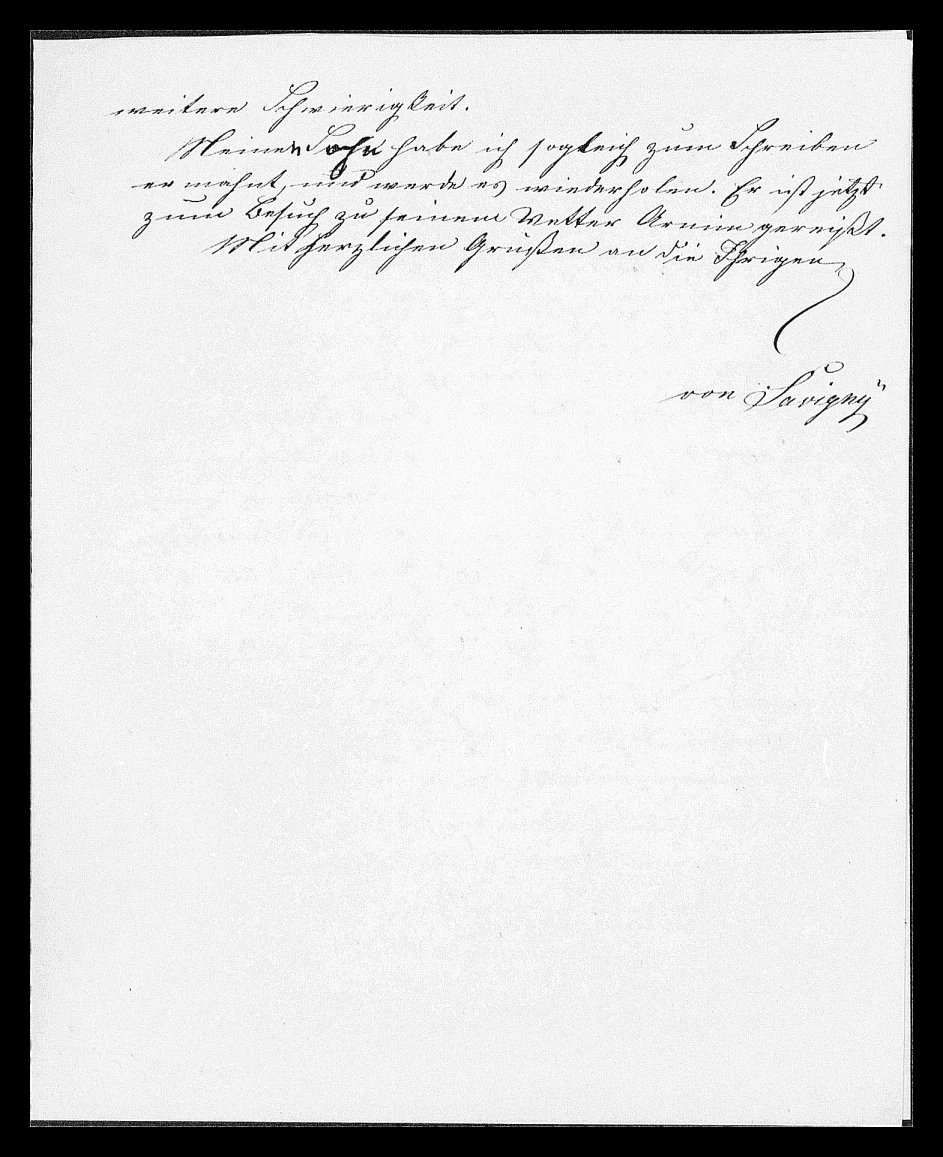 weitere Schwierigkeit.
Meinen Sohn habe ich sogleich zum Schreiben
ermahnt, und werde es wiederholen. Er ist jetzt
zum Besuch zu seinem Vetter Arnim gereißt.
Mit herzlichen Grüßen an die Ihrigen
von Savigny